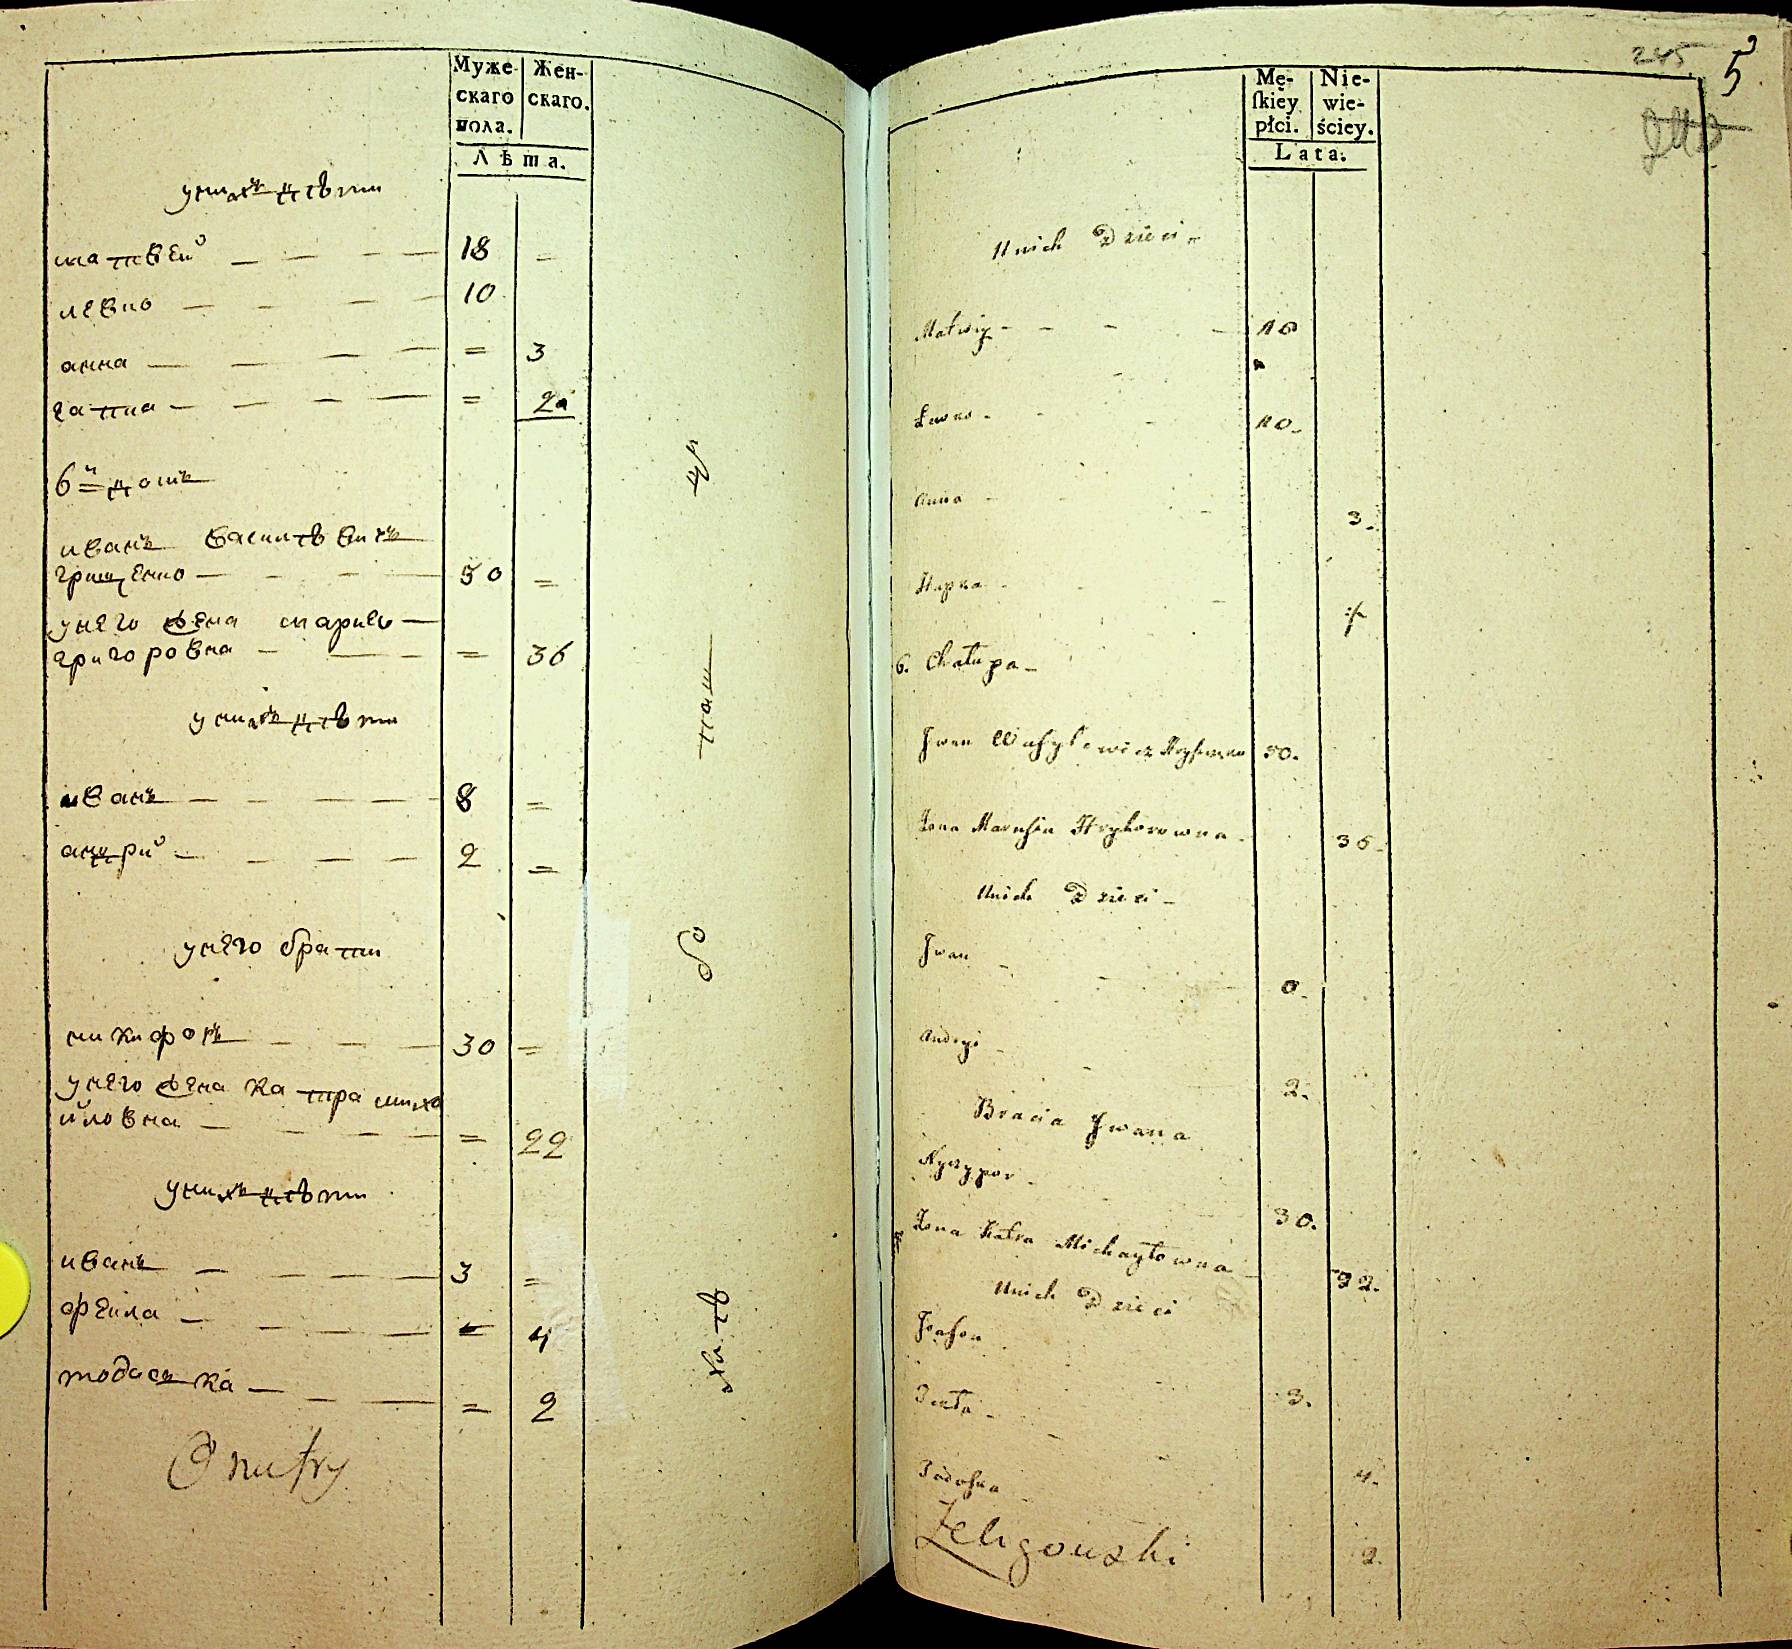 Муже-
скаго
пола.
Жен-
скаго.
Лѣта.
у нихъ дѣти
матвей — — — — 18 =
левко — — — — 10
анна — — — — = 3
гапка — — — — = 2
6й домъ
иванъ василѣвичъ
грищенко — — — — 50 =
у него жена
григоровна — — — = 36
у нихъ дѣти
иванъ — — — — 8 =
андрий — — — — 2 =
у него брати
никифоръ — — — 30 =
у него жена катра миха
йловна — — — — = 22
у нихъ дѣти
иванъ — — — — 3 =
— — — — = 4
тодоська — — — = 2
Onufry
245
5
Mę-
ſkiey
płci.
Nie-
wie-
ściey.
Lata.
U nich Dzieci
Matwiy - - - -
Lewko - - - 10.
Anna - - - 3.
Hapka - -
6. Chałupa
Iwan Wasylewicz 50.
Zona Hryhorowna - 36.
U nich Dzieci -
Iwan
Andryi - 2.
Bracia Iwana
30.
Zona Katra Michayłowna - 22.
U nich Dzieci
3.
4.
Todoska - 2.
Zeligowski